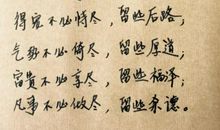 得宠不必恃尽，留些后路；
气势不必倚尽，留些厚道；
富贵不必享尽，留些福泽；
凡事不必做尽，留些余德。